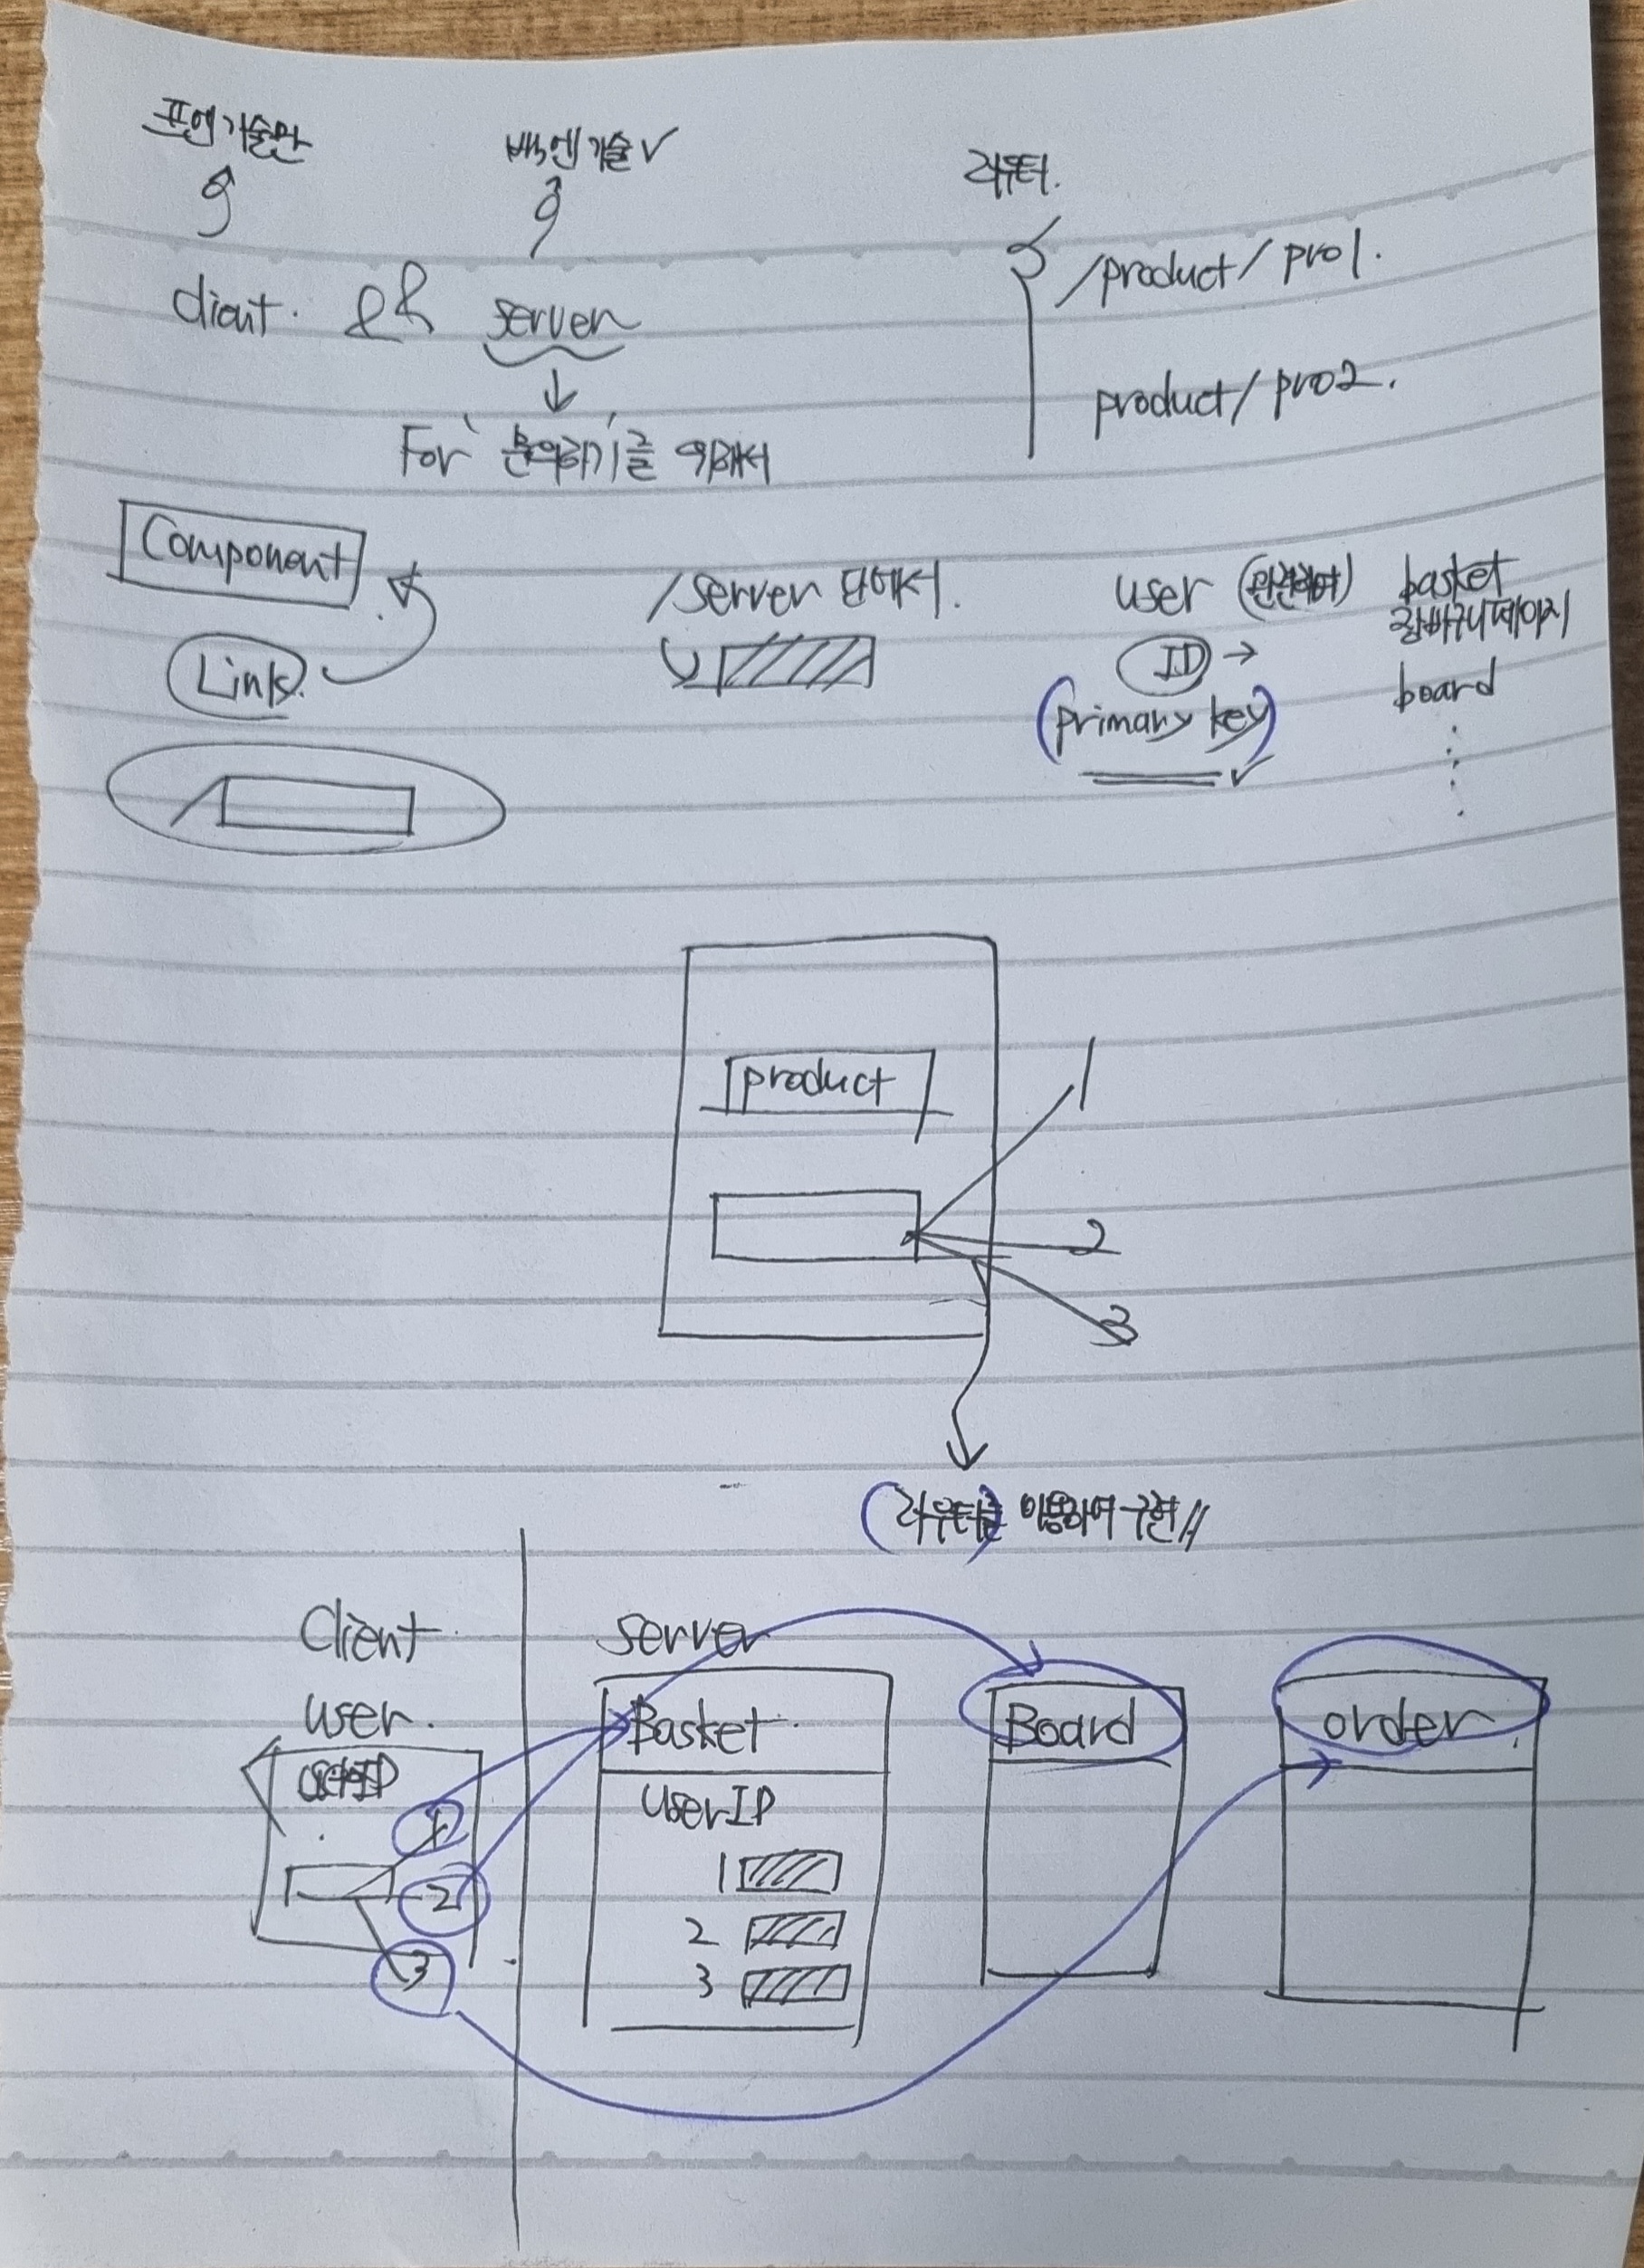 프엔 기술만
백엔 기술 ✓
라우터.
client. && server
/product/pro1.
product/pro2.
For '문의하기'를 위해서
Component
/server 단에서.
user
basket
장바구니페이지
Link.
ID →
board
(primary key)
product
1
2
3
(라우터)를 이용하여 구현//
Client
server
user.
Basket.
Board
order
userID
userID
1
1
2
2
3
3